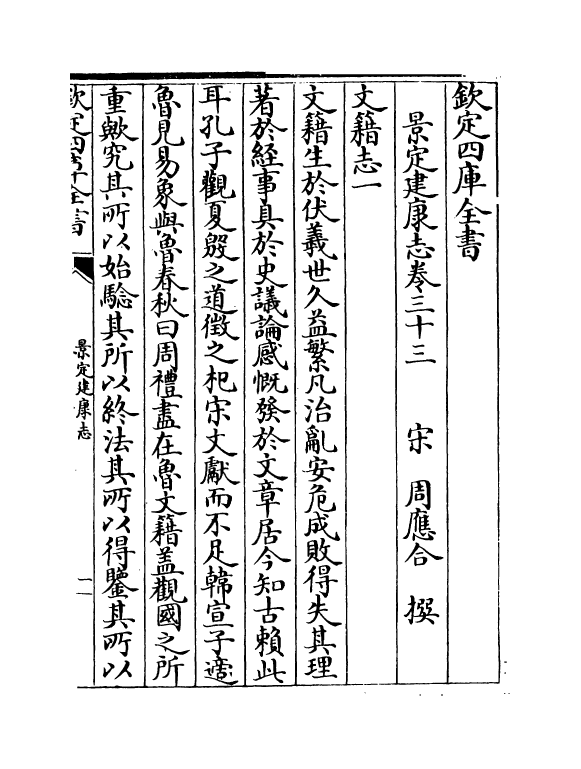 欽定四庫全書
景定建康志卷三十三　宋　周應合　撰
文籍志一
文籍生於伏羲世久益繁凡治亂安危成敗得失其理
著於經事具於史議論感慨發於文章居今知古賴此
耳孔子觀夏殷之道徵之杞宋文獻而不足韓宣子適
魯見易象與魯春秋曰周禮盡在魯文籍蓋觀國之所
重歟究其所以始驗其所以終法其所以得鑒其所以
欽定四庫全書
景定建康志
一